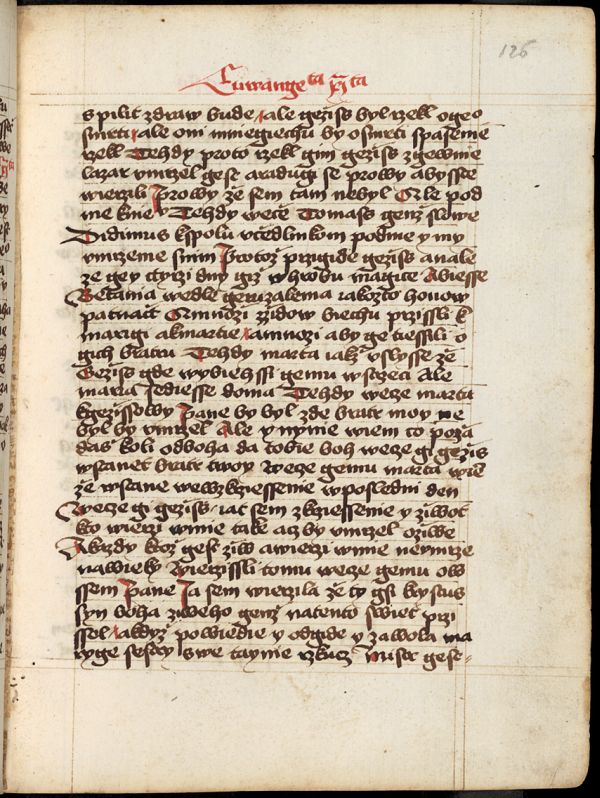 126
Ewange ta xi ta
spilit zdraw bude ale geziss byl rzekl o geo
smrti ale oni mniegiechu by o smrti spaseme
rzekl Tehdy proto rzekl gim geziss zgewnie
lazar umrzel gest a radugi se pro wy abyste
wierzili Pro wy že sem tam nebyl Ale pod
me knie Tehdy wece Tomass genž slowe
Didimus kspolu učedlnikom podme y my
umrzeme snim Protož przigide geziss a nale
ze gey cztyrzi dny giž w hrobu magice A biesse
Betania wedle geruzalema iakožto honow
patnact A mnozi zzidow biechu przissli k
marzi a k martie a mnozi aby ge tiessili o
gich bratru Tehdy marta iakž uslysse že
Geziss gde wybiehssi gemu wstrzeci Ale
maria sediesse doma Tehdy wece marta
kgezissowy Pane by byl zde bratr moy ne
byl by umrzel Ale y nynie wiem co poža
das koli od boha da tobie boh wece gi geziss
wstanet bratr twoy Wece gemu marta wiem
že wstane wewzkziessenie w poslední den
Wece gi geziss iat sem zkziessenie y ziwot
kto wierzi wmie take acz by umrzel ožiwe
A každy kož gest žiw a wierzi wmie neymrze
nawieky Wierzissli tomu wece gemu ow
ssem Pane Ja sem wierzila že ty gsi krystus
syn boha ziweho genž natento swiet przi
ssel A kdyz powiedie y odgide y zawola ma
rzyge sestry swe taynie rzkucz mistr gest